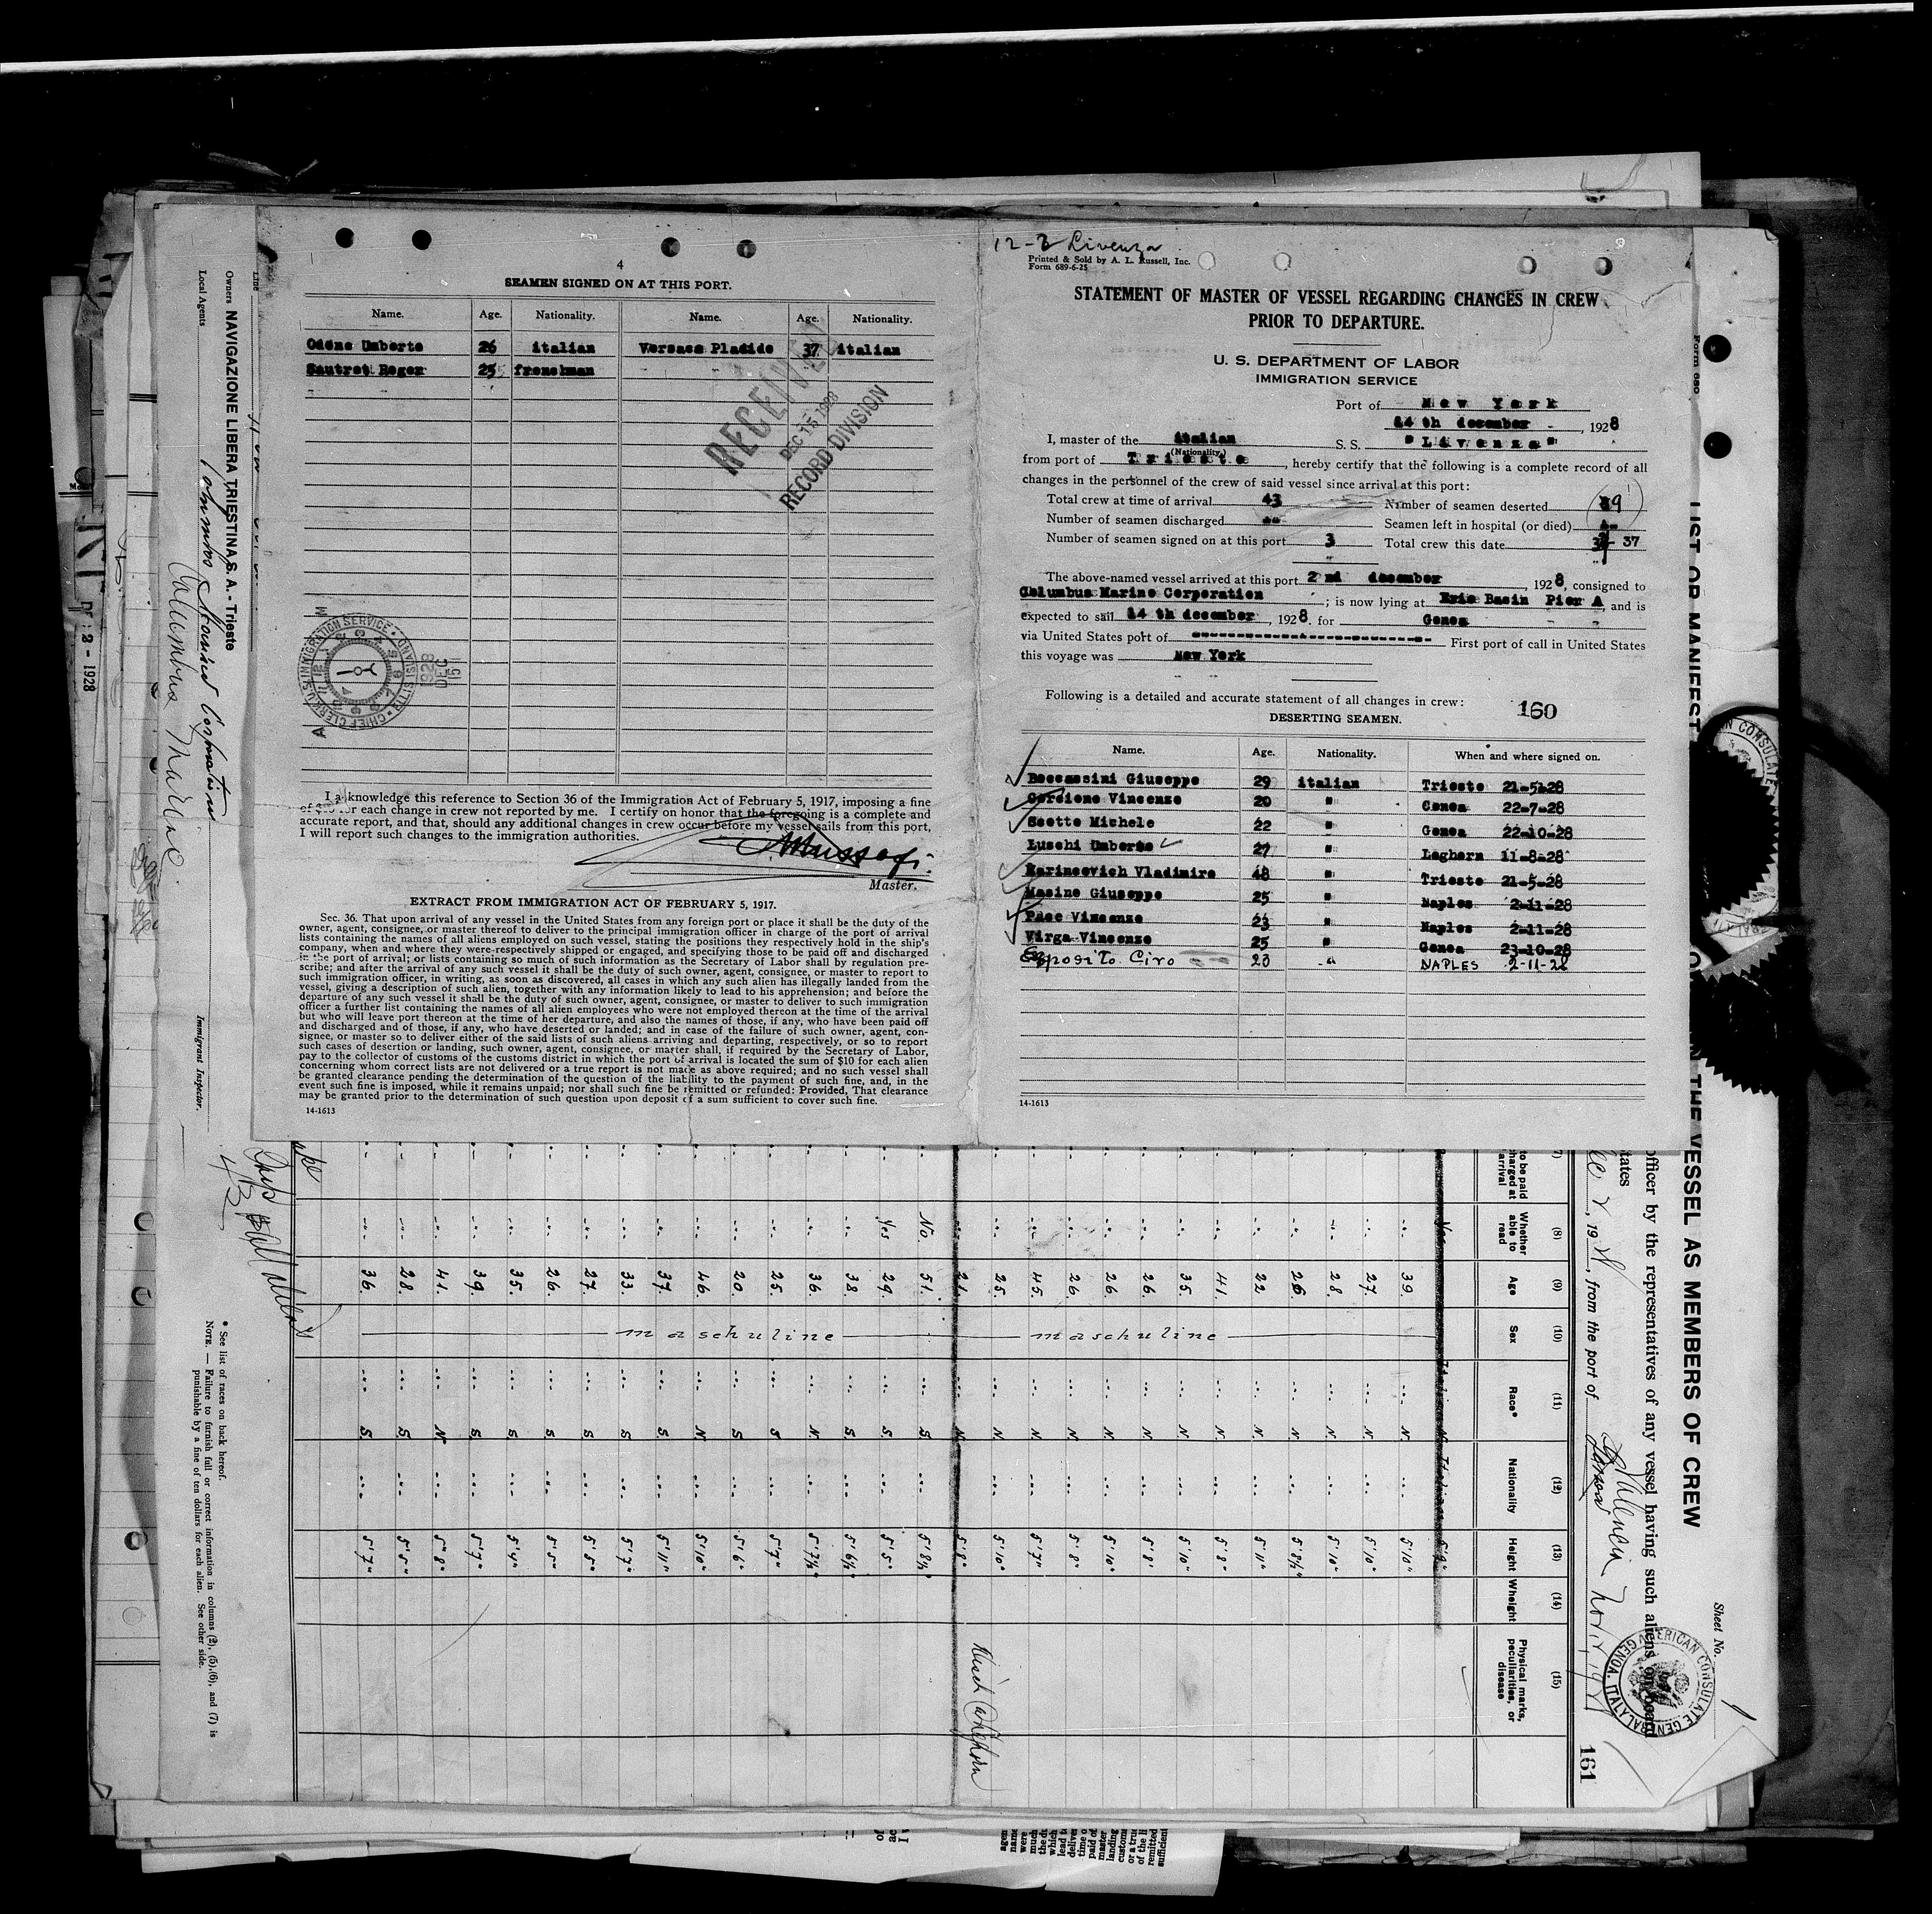 4
SEAMEN SIGNED ON AT THIS PORT.
Name. Age. Nationality. Name. Age. Nationality.
Odëne Umberto 26 italian Versace Placido 37 italian
Sautret Roger 25 frenchman
RECEIVED
DEC 15 1928
RECORD DIVISION
CHIEF CLERK U.S. IMMIGRATION SERVICE
1928
DEC
15
I acknowledge this reference to Section 36 of the Immigration Act of February 5, 1917, imposing a fine
of $10 for each change in crew not reported by me. I certify on honor that the foregoing is a complete and
accurate report, and that, should any additional changes in crew occur before my vessel sails from this port,
I will report such changes to the immigration authorities.
Master.
EXTRACT FROM IMMIGRATION ACT OF FEBRUARY 5, 1917.
Sec. 36. That upon arrival of any vessel in the United States from any foreign port or place it shall be the duty of the
owner, agent, consignee, or master thereof to deliver to the principal immigration officer in charge of the port of arrival
lists containing the names of all aliens employed on such vessel, stating the positions they respectively hold in the ship's
company, when and where they were respectively shipped or engaged, and specifying those to be paid off and discharged
in the port of arrival; or lists containing so much of such information as the Secretary of Labor shall by regulation pre-
scribe; and after the arrival of any such vessel it shall be the duty of such owner, agent, consignee, or master to report to
such immigration officer, in writing, as soon as discovered, all cases in which any such alien has illegally landed from the
vessel, giving a description of such alien, together with any information likely to lead to his apprehension; and before the
departure of any such vessel it shall be the duty of such owner, agent, consignee, or master to deliver to such immigration
officer a further list containing the names of all alien employees who were not employed thereon at the time of the arrival
but who will leave port thereon at the time of her departure, and also the names of those, if any, who have been paid off
and discharged and of those, if any, who have deserted or landed; and in case of the failure of such owner, agent, con-
signee, or master so to deliver either of the said lists of such aliens arriving and departing, respectively, or so to report
such cases of desertion or landing, such owner, agent, consignee, or master shall, if required by the Secretary of Labor,
pay to the collector of customs of the customs district in which the port of arrival is located the sum of $10 for each alien
concerning whom correct lists are not delivered or a true report is not made as above required; and no such vessel shall
be granted clearance pending the determination of the question of the liability to the payment of such fine, and, in the
event such fine is imposed, while it remains unpaid; nor shall such fine be remitted or refunded: Provided, That clearance
may be granted prior to the determination of such question upon deposit of a sum sufficient to cover such fine.
14-1613
12-2 Livenza
Printed & Sold by A. L. Russell, Inc.
Form 689-6-25
STATEMENT OF MASTER OF VESSEL REGARDING CHANGES IN CREW
PRIOR TO DEPARTURE.
U. S. DEPARTMENT OF LABOR
IMMIGRATION SERVICE
Port of New York
14 th december, 1928
I, master of the italian S. S. "Livenza"
(Nationality)
from port of Trieste, hereby certify that the following is a complete record of all
changes in the personnel of the crew of said vessel since arrival at this port:
Total crew at time of arrival 43 Number of seamen deserted 9
Number of seamen discharged -- Seamen left in hospital (or died) --
Number of seamen signed on at this port 3 Total crew this date 37
The above-named vessel arrived at this port 2 nd december 1928, consigned to
Columbus Marine Corporation; is now lying at Erie Basin Pier A, and is
expected to sail 14 th december, 1928, for Genoa
via United States port of First port of call in United States
this voyage was New York
Following is a detailed and accurate statement of all changes in crew:
160
DESERTING SEAMEN.
Name. Age. Nationality. When and where signed on.
Boccassini Giuseppe 29 italian Trieste 21-5-28
Cordione Vincenzo 20 " Genoa 22-7-28
Scotto Michele 22 " Genoa 22-10-28
Luschi Umberto 27 " Leghorn 11-8-28
Marincovich Vladimiro 48 " Trieste 21-5-28
Masino Giuseppe 25 " Naples 2-11-28
Pace Vincenzo 23 " Naples 2-11-28
Virga Vincenzo 25 " Genoa 23-10-28
Esposito Ciro 23 " NAPLES 2-11-28
14-1613
Line
Owners NAVIGAZIONE LIBERA TRIESTINA S. A. - Trieste
Local Agents Columbus Marine Corporation
Columbus Marine
Immigrant Inspector.
DEC 2 - 1928
* See list of races on back hereof.
NOTE. — Failure to furnish full or correct information in columns (2), (5), (6), and (7) is
punishable by a fine of ten dollars for each alien. See other side.
Form 680
Sheet No. 1
LIST OR MANIFEST
THE VESSEL AS MEMBERS OF CREW
officer by the representatives of any vessel having such aliens on board
, 19, from the port of Valencia
AMERICAN CONSULATE GENERAL
GENOA, ITALY
161
(7) (8) (9) (10) (11) (12) (13) (14) (15)
to be paid
Whether able to read
Age
Sex
Race*
Nationality
Height
Wheight
Physical marks, peculiarities, or disease
39. N. 5'10"
27. N. 5'10"
28. N. 5'10"
26. N. 5'8½"
22 N. 5'11"
41. N. 5'8"
35. N. 5'10"
26. N. 5'8'
26. N. 5'10"
26. N. 5'8"
45. N. 5'7"
25. N. 5'10"
21. N. 5'8"
No. 51. S. 5'8½"
Yes 29. S. 5'5"
38. S. 5'6½"
36. N. 5'7½"
25. S 5'7"
20. S 5'6"
46. N. 5'10"
37. S. 5'11"
33. S 5'7"
27. S 5'5"
26. S 5'5"
35. S. 5'4"
39. S. 5'7"
41. N 5'8"
28. S. 5'5"
36. S. 5'7"
maschuline maschuline